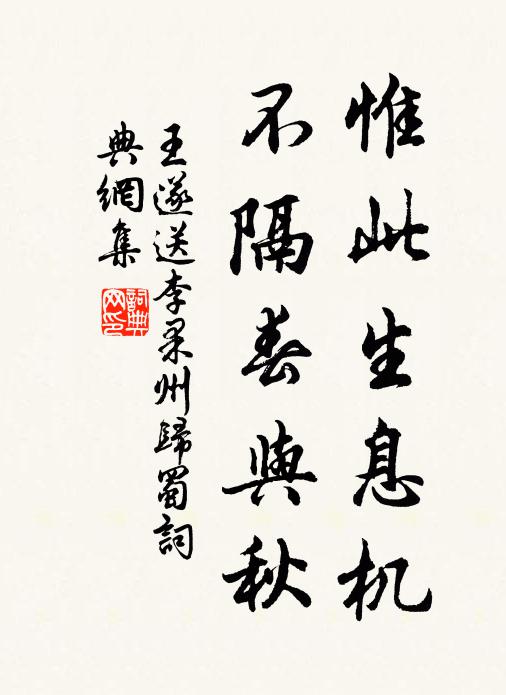 惟此生息机
不隔春與秋
王遂送李果州歸蜀詞
典網集
詞典
网印